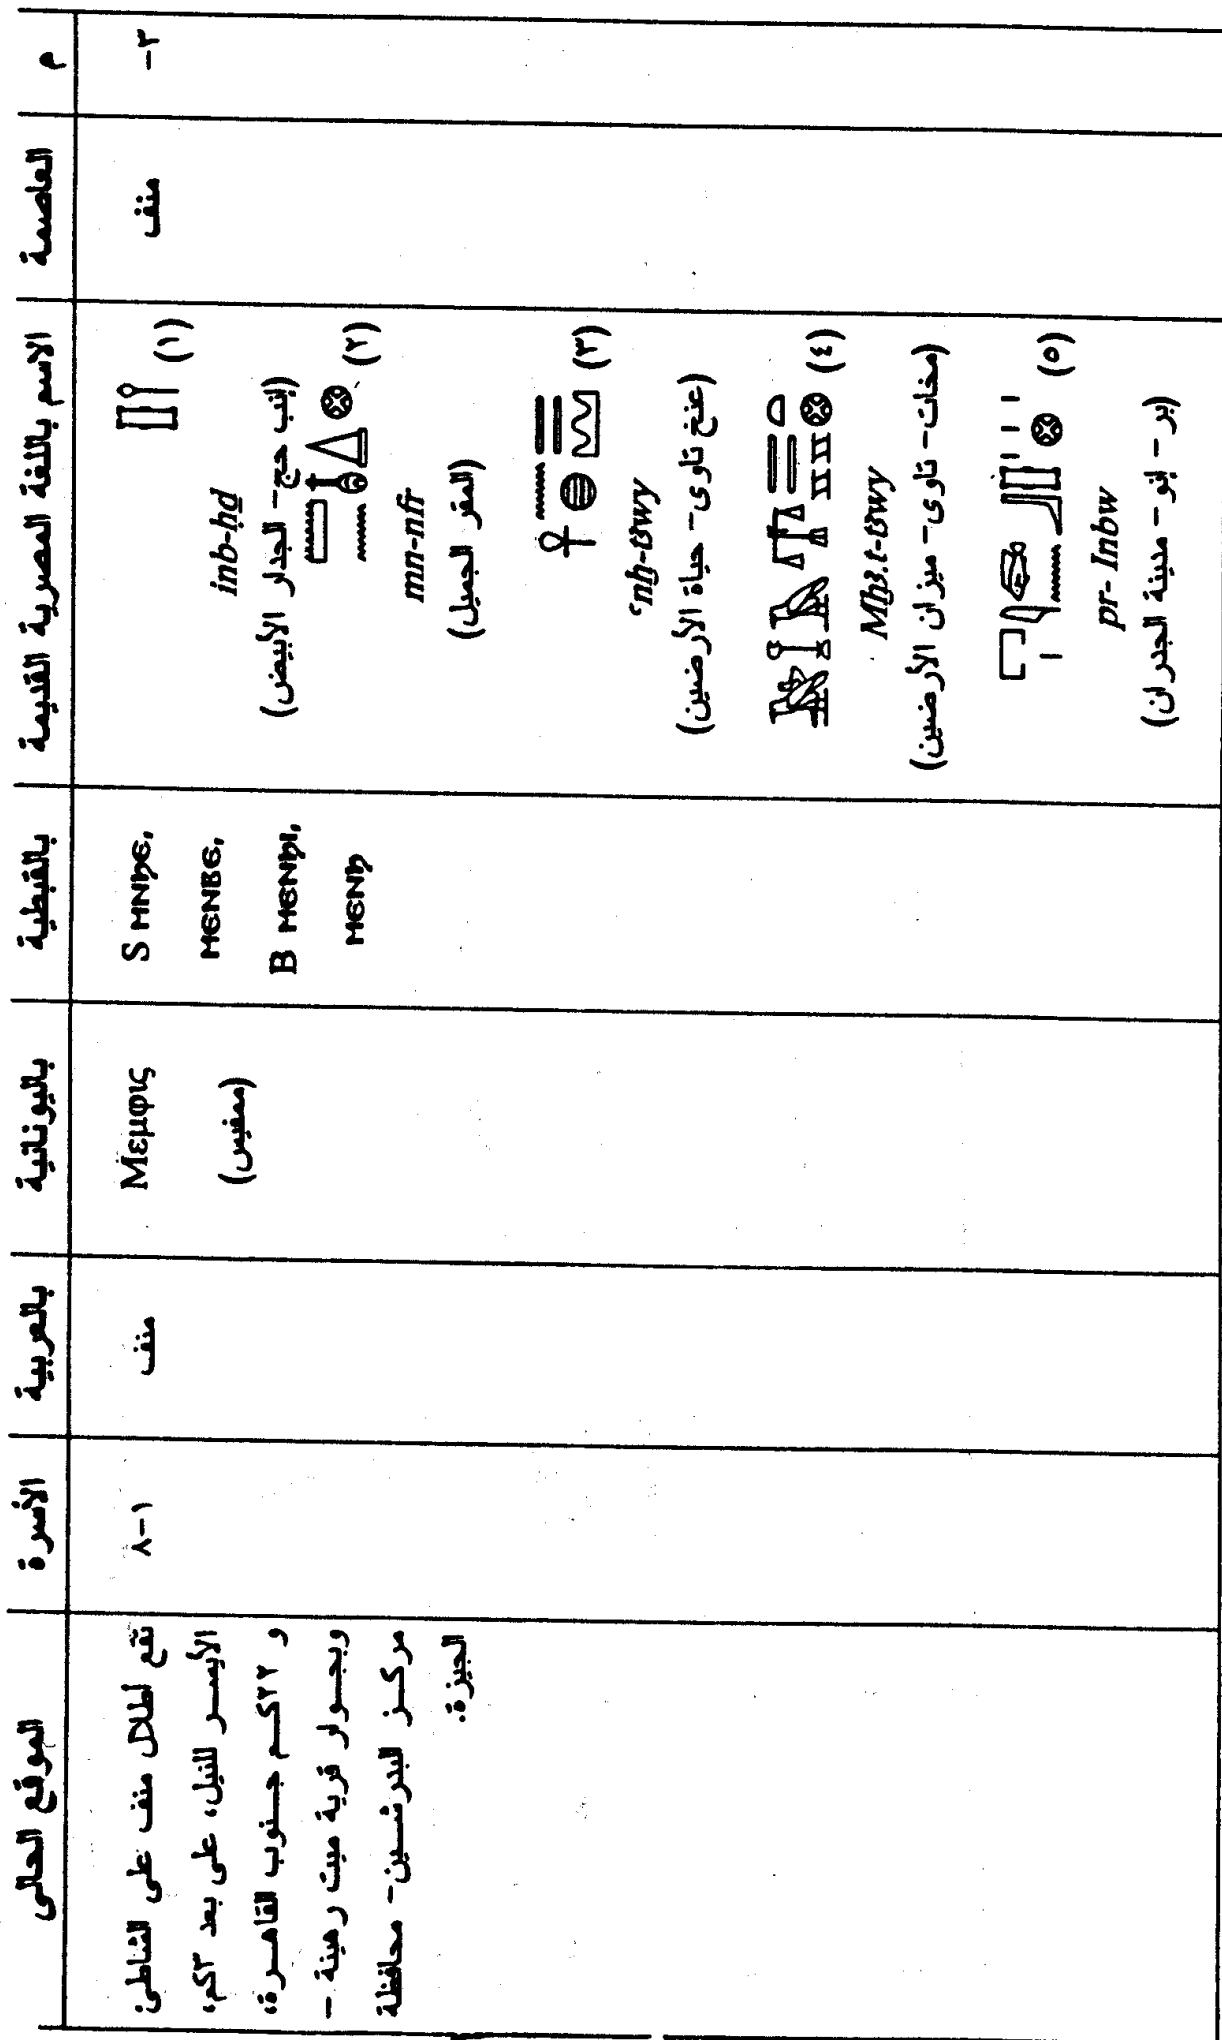 م
العاصمة
الاسم باللغة المصرية القديمة
بالقبطية
باليونانية
بالعربية
الأسرة
الموقع الحالى
٣-
منف
(١)
inb-ḥḏ
(إنب حج- الجدار الأبيض)
(٢)
mn-nfr
(المقر الجميل)
(٣)
ʿnḫ-tꜣwy
(عنخ تاوى- حياة الأرضين)
(٤)
Mḫꜣ.t-tꜣwy
(مخات- تاوى- ميزان الأرضين)
(٥)
pr- Inbw
(بر - إنو - مدينة الجدران)
S ⲙⲛϧⲉ,
ⲙⲉⲛⲃⲉ,
B ⲙⲉⲛϧⲓ,
ⲙⲉⲛϧ
Μεμφις
(ممفيس)
منف
١-٨
تقع أطلال منف على الشاطئ
الأيسر للنيل، على بعد ٣كم،
و ٢٢كم جنوب القاهرة،
وبجوار قرية ميت رهينة -
مركز البدرشين- محافظة
الجيزة.